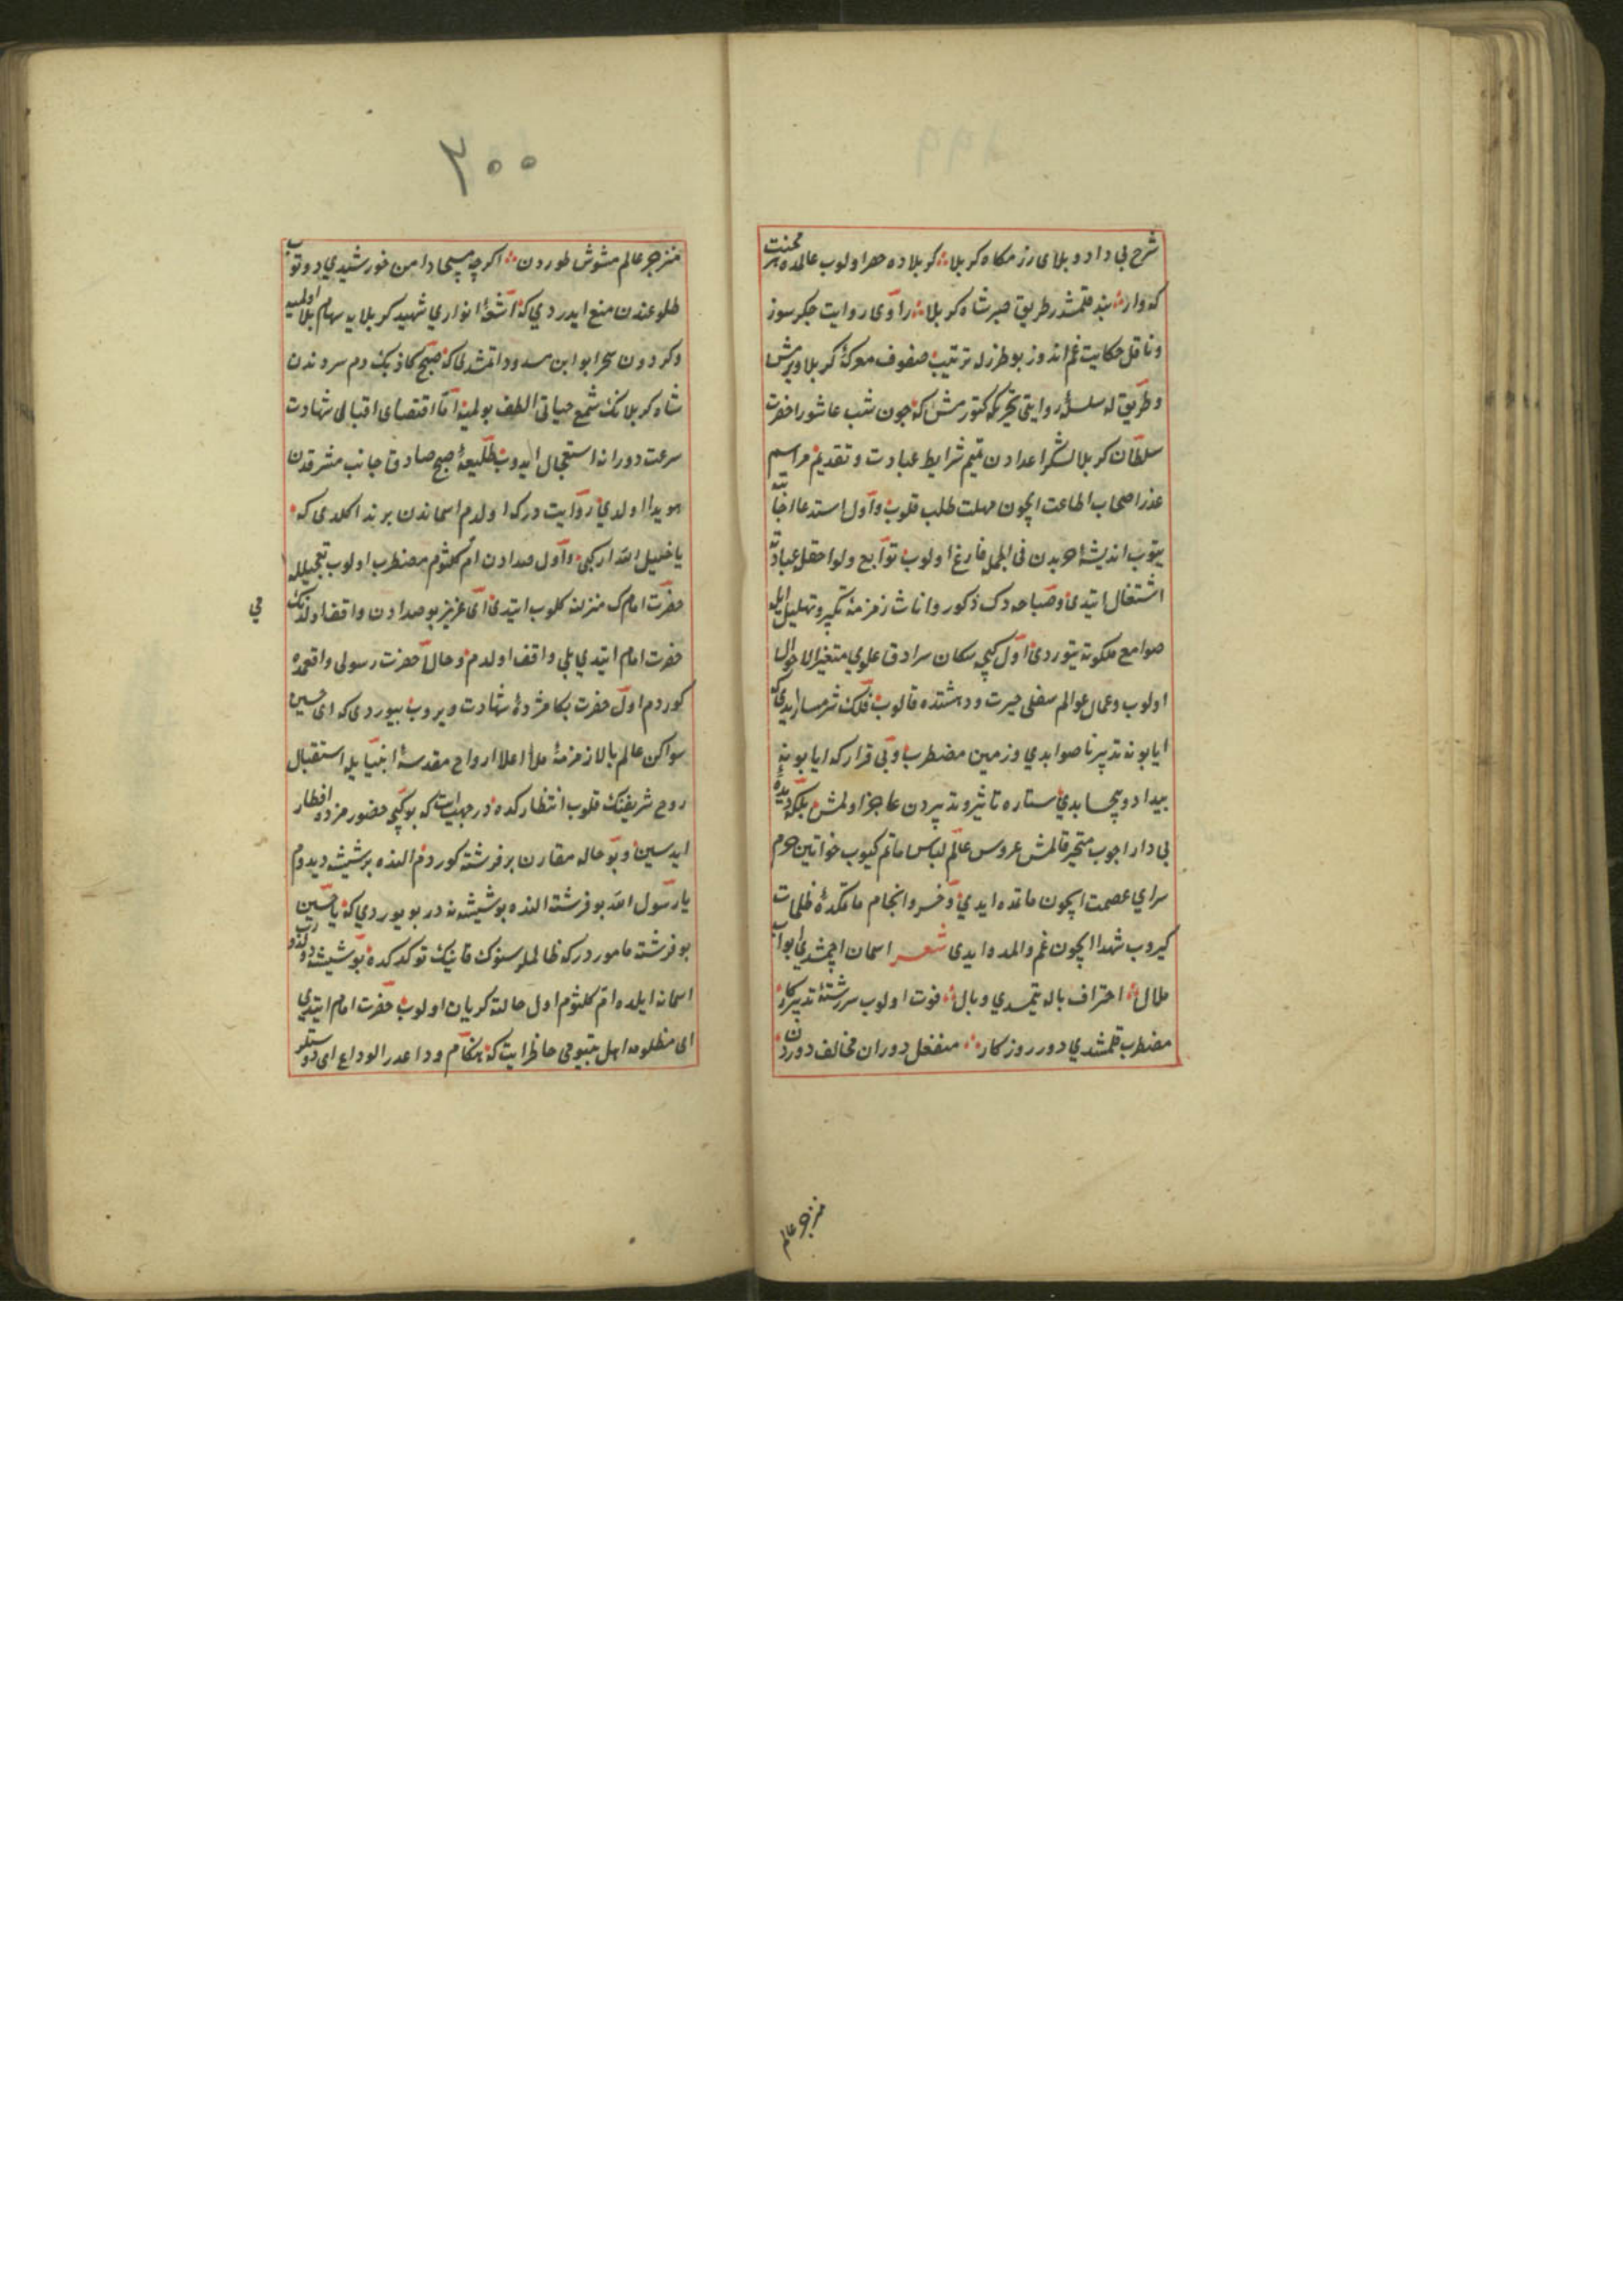 شرح بی داد و بلای رزمکاه کربلا کربلاده حصر اولوب عالمده هر محنت
که وار بند قلمشدر طریق صبر شاه کربلا راوی روایت جکرسوز
و ناقل حکایت غم اندوز بو طرزله ترتیب صفوف معرکهٔ کربلا ویرمش
و طریق له سلسلهٔ روایتی تحریکه کتورمش که چون شب عاشورا حضرت
سلطان کربلا لشکر اعدادن تتمیم شرایط عبادت و تقدیم مراسم
عذر اصحاب اطاعت ایچون مهلت طلب قلوب و اول استدعا
یتوب اندیشهٔ حربدن فی الجمله فارغ اولوب توابع و لواحقله عبادته
اشتغال ایتدی و صباحه دک ذکور و اناث زمزمهٔ تکبیر و تهلیل ایله
صوامع ملکوته یتوردی اول کیجه سکان سرادق علوی متغیر الاحوال
اولوب و عمال عوالم سفلی حیرت و دهشتده قالوب فلک شرمسار ایدی که
ایا بو نه تدبیر ناصوابدی و زمین مضطرب و بی قرار که ایا بو نه
بیداد و بیحسابدی ستاره تاثیر و تدبیردن عاجز اولمش بلکه دیدهٔ
بی دار اچوب متحیر قالمش عروس عالم لباس ماتم کیوب خواتین حرم
سرای عصمت ایچون ماتمده ایدی و خسرو انجم ماتمکدهٔ ظلمات
کیروب شهدا ایچون غم و المده ایدی شعر اسمان اچمشدی ابواب
ملال احتراف باله یتمسدی وبال فوت اولوب سررشتهٔ تدبیر کار
مضطرب قلمشدی دور روزکار منفعل دوران مخالف دوردن
منزجر عالم
۳۰۰
منزجر عالم مشوش طوردن اکرچه مسیحا دامن خورشیدی دوتوب
طلوعندن منع ایدردی که اشعهٔ انواری شهید کربلایه سهام بلا اولمیه
و کردون سحر ابوابن مسدود اتمشدی که صبح کاذبک دم سردندن
شاه کربلانک شمع حیاتی الطف بولمیه اما اقتضای اقبالی شهادت
سرعت دورانه استعجال ایدوب طلیعهٔ صبح صادق جانب مشرقدن
هویدا اولدی روایت درکه اولدم اسماندن بر ندا کلدی که
یا خلیل الله ارکبی و اول صدادن ام کلثوم مضطرب اولوب تعجیلله
حضرت امامک منزلنه کلوب ایتدی ای عزیز بو صدادن واقف اولدکمی
حضرت امام ایتدی بلی واقف اولدم و حالا حضرت رسولی واقعمده
کوردم اول حضرت بکا مژدهٔ شهادت ویروب بیوردی که ای حسین
سواکن عالم بالا زمزمهٔ ملأ اعلا ارواح مقدسهٔ انبیا ایله استقبال
روح شریفنک قلوب انتظارکده در جهد ایت که بو کیجه حضورمزده افطار
ایدسین و بو حاله مقارن بر فرشته کوردم النده بر شیشه دیدم
یا رسول الله بو فرشته النده بو شیشه نه در بویوردی که یا حسین
بو فرشته مامور درکه ظالملر سنوک قانیک توکدکده بو شیشه
اسمانه ایلده ام کلثوم اول حالته کریان اولوب حضرت امام ایتدی
ای مظلومه اهل بیتومی حاضر ایت که هنکام وداعدر الوداع ای دوستلر